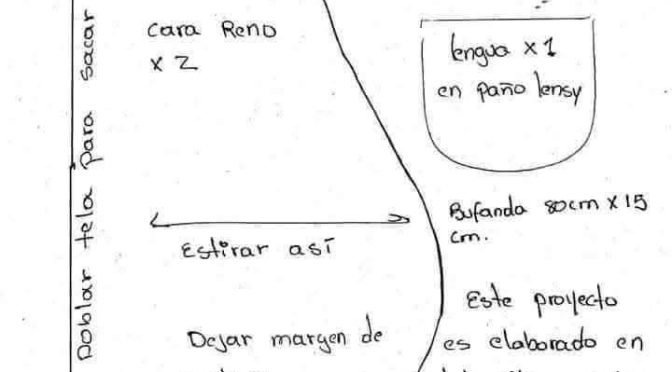 Doblar tela para sacar
cara Reno
x 2
lengua x 1
en paño lensy
Estirar así
Bufanda 80cm x 15
cm.
Este proyecto
es elaborado en
Dejar margen de